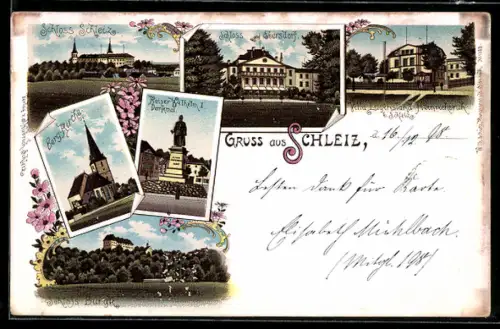 Schloss Schleiz
Schloss Ebersdorf.
b. Schleiz
Kaiser Wilhelm I
Denkmal.
Bergkirche
GRUSS AUS SCHLEIZ,
d 16/12 98
Besten Dank für Karte
Elisabeth Mühlbach.
(Mitgl. 198)
Schloss Burgk